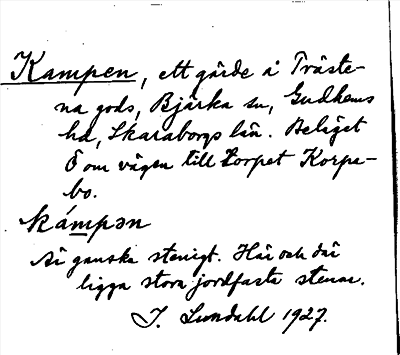 Kampen, ett gärde å Träste-
na gods, Bjärka sn, Gudhems
hd, Skaraborgs län. Beläget
Ö om vägen till torpet Korpe-
bo.
kámpən
Är ganska stenigt. Här och där
ligga stora jordfasta stenar.
I. Lundahl 1927.